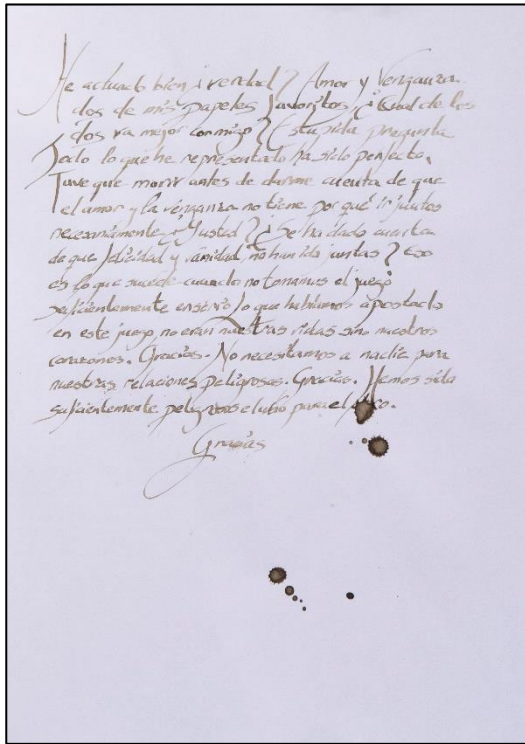 He actuado bien ¿verdad? Amor y Venganza
dos de mis papeles favoritos. ¿Cual de los
dos va mejor conmigo? Estupida pregunta
Todo lo que he representado ha sido perfecto.
Tuve que morir antes de darme cuenta de que
el amor y la venganza no tiene por qué ir juntos
necesariamente. ¿Y usted? ¿Se ha dado cuenta
de que felicidad y vanidad no han ido juntas? Eso
es lo que sucede cuando no tomamos el juego
suficientemente en serio. Lo que habiamos apostado
en este juego, no eran nuestras vidas sino nuestros
corazones. Gracias. No necesitamos a nadie para
nuestras relaciones peligrosas. Gracias. Hemos sido
suficientemente peligrosos el uno para el
Gracias